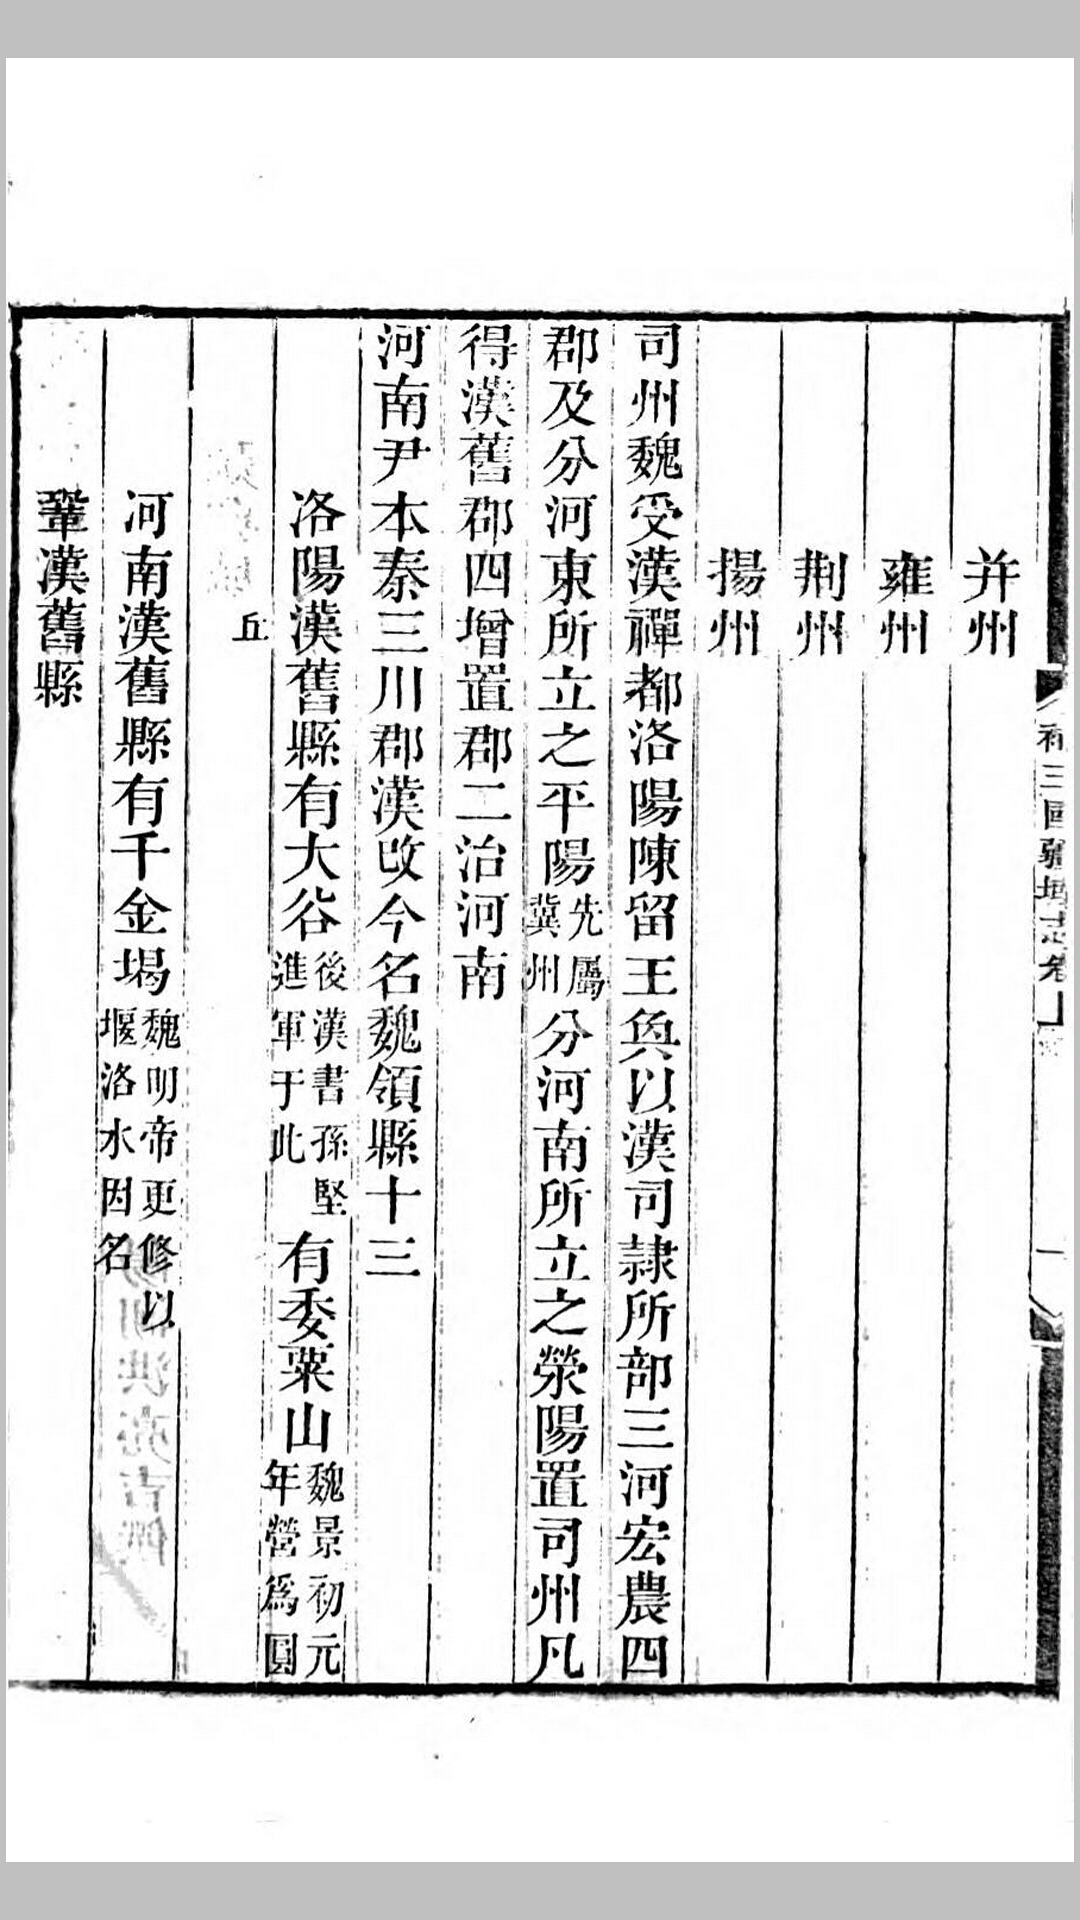 并州
雍州
荆州
揚州
司州魏受漢禪都洛陽陳留王奐以漢司隸所部三河宏農四
郡及分河東所立之平陽先屬冀州分河南所立之滎陽置司州凡
得漢舊郡四增置郡二治河南
河南尹本秦三川郡漢改今名魏領縣十三
洛陽漢舊縣有大谷後漢書孫堅進軍于此有委粟山魏景初元年營爲圓
丘
河南漢舊縣有千金堨魏明帝更修以堰洛水因名
鞏漢舊縣
補三國疆域志卷上
一